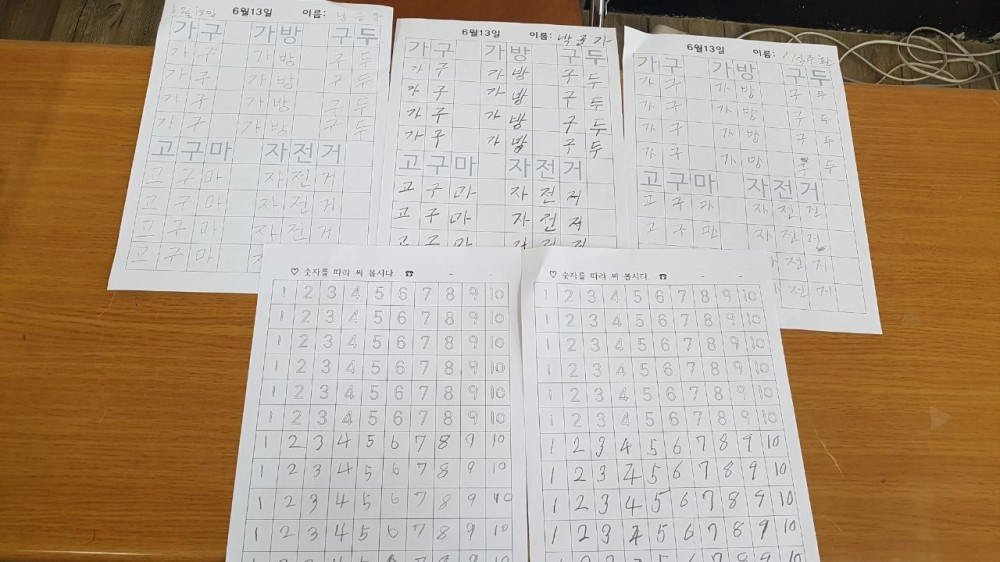 6월13일 6월13일 이름:
가구 가방 구두
가구 가방 구두
가구 가방 구두
가구 가방 구두
가구 가방 구두
고구마 자전거
고구마 자전거
고구마 자전거
고구마 자전거
고구마
6월13일 이름: 박
가구 가방 구두
가구 가방 구두
가구 가방 구두
가구 가방 구두
가구 가방 구두
고구마 자전거
고구마 자전거
고구마 자전거
고구마 자전거
6월13일 이름:
가구 가방 구두
가구 가방 구두
가구 가방 구두
가구 가방 구두
가구 가방 구두
고구마 자전거
고구마 자전거
고구마 자전거
전거
전거
♡ 숫자를 따라 써 봅시다. ☎ - -
1 2 3 4 5 6 7 8 9 10
1 2 3 4 5 6 7 8 9 10
1 2 3 4 5 6 7 8 9 10
1 2 3 4 5 6 7 8 9 10
1 2 3 4 5 6 7 8 9 10
1 2 3 4 5 6 7 8 9 10
1 2 3 4 5 6 7 8 9 10
1 2 3 4 5 6 7 8 9 10
1 2 3 4 5 6 7 8 9 10
1 2 3 4 5 6 7 8 9 10
1 2 3 4 5 6 7 8 9 10
♡ 숫자를 따라 써 봅시다. ☎ - -
1 2 3 4 5 6 7 8 9 10
1 2 3 4 5 6 7 8 9 10
1 2 3 4 5 6 7 8 9 10
1 2 3 4 5 6 7 8 9 10
1 2 3 4 5 6 7 8 9 10
1 2 3 4 5 6 7 8 9 10
1 2 3 4 5 6 7 8 9 10
1 2 3 4 5 6 7 8 9 10
1 2 3 4 5 6 7 8 9 10
1 2 3 4 5 6 7 8 9 10
1 2 3 4 5 6 7 8 9 10